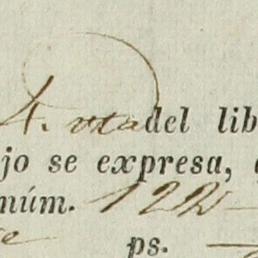 4. vta del lib
jo se expresa,
núm. 122
ps.